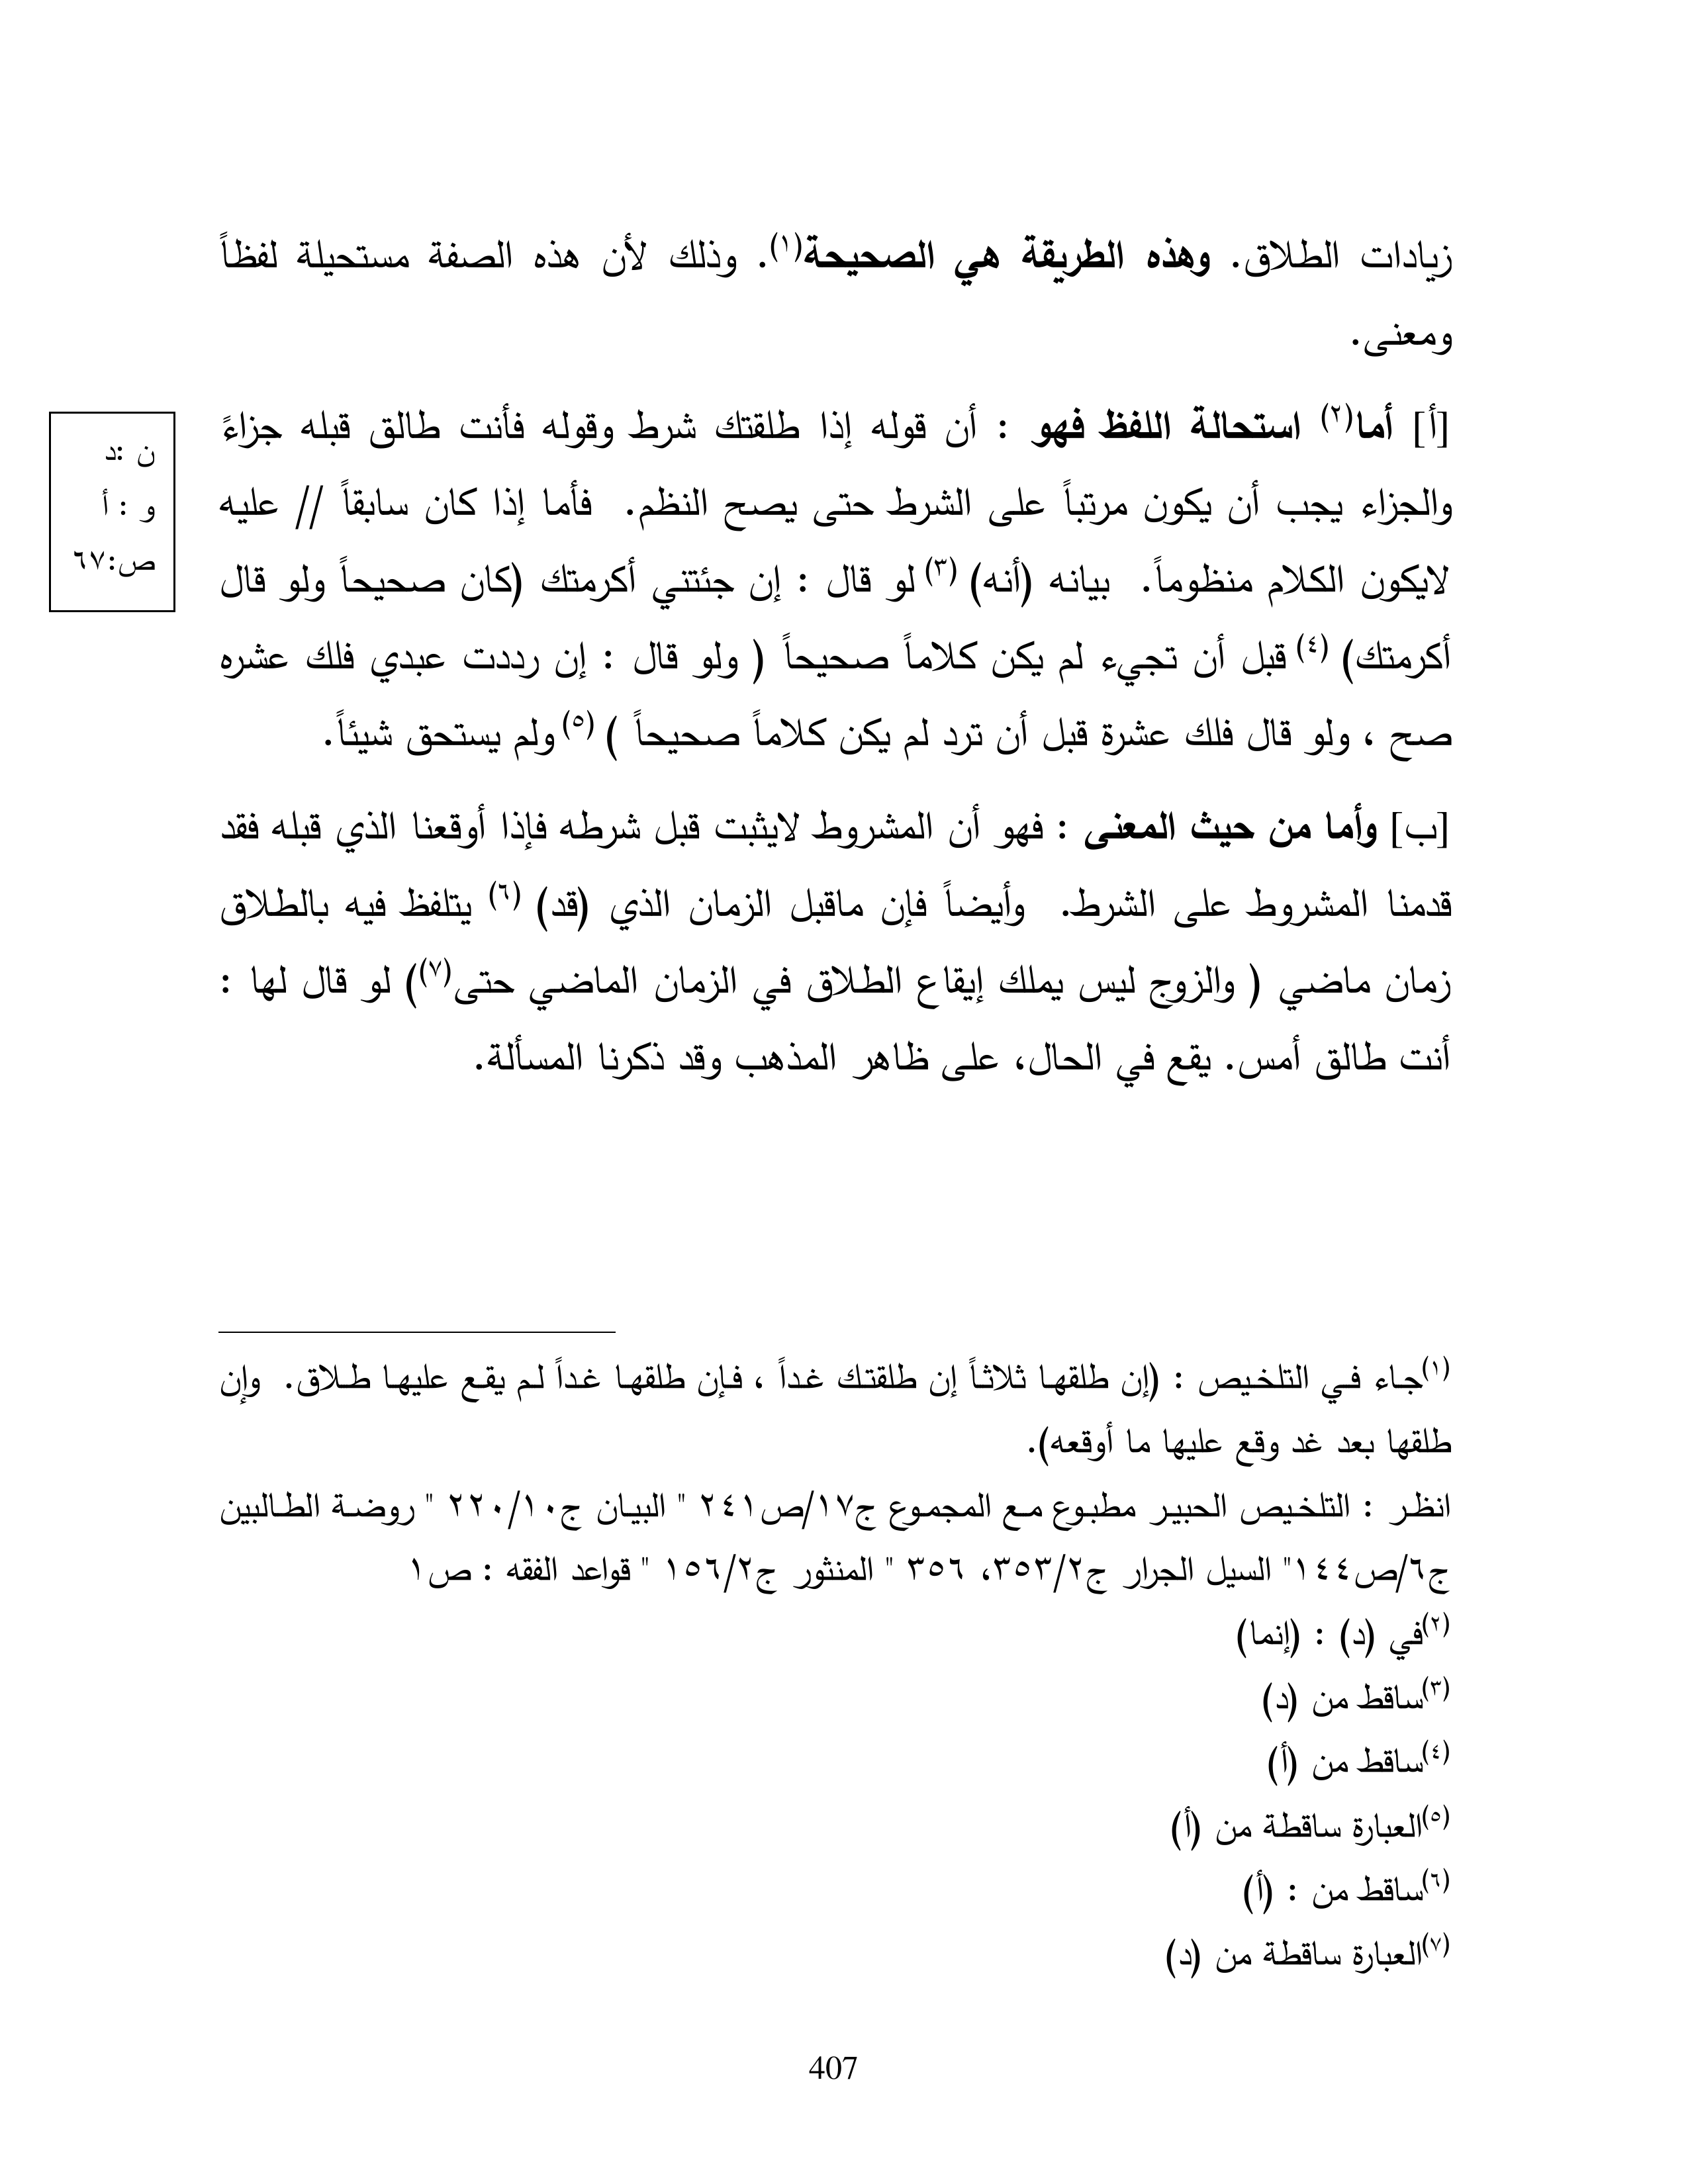 زيادات الطلاق. وهذه الطريقة هي الصحيحة(١). وذلك لأن هذه الصفة مستحيلة لفظاً
ومعنى.
[أ] أما(٢) استحالة اللفظ فهو : أن قوله إذا طلقتك شرط وقوله فأنت طالق قبله جزاءً
والجزاء يجب أن يكون مرتباً على الشرط حتى يصح النظم. فأما إذا كان سابقاً // عليه
لايكون الكلام منظوماً. بيانه (أنه) (٣) لو قال : إن جئتني أكرمتك (كان صحيحاً ولو قال
أكرمتك) (٤) قبل أن تجيء لم يكن كلاماً صحيحاً ( ولو قال : إن رددت عبدي فلك عشره
صح ، ولو قال فلك عشرة قبل أن ترد لم يكن كلاماً صحيحاً ) (٥) ولم يستحق شيئاً.
[ب] وأما من حيث المعنى : فهو أن المشروط لايثبت قبل شرطه فإذا أوقعنا الذي قبله فقد
قدمنا المشروط على الشرط. وأيضاً فإن ماقبل الزمان الذي (قد) (٦) يتلفظ فيه بالطلاق
زمان ماضي ( والزوج ليس يملك إيقاع الطلاق في الزمان الماضي حتى(٧)) لو قال لها :
أنت طالق أمس. يقع في الحال، على ظاهر المذهب وقد ذكرنا المسألة.
ن :د
و : أ
ص:٦٧
(١)جاء في التلخيص : (إن طلقها ثلاثاً إن طلقتك غداً ، فإن طلقها غداً لم يقع عليها طلاق. وإن
طلقها بعد غد وقع عليها ما أوقعه).
انظر : التلخيص الحبير مطبوع مع المجموع ج١٧/ص٢٤١ " البيان ج١٠/٢٢٠ " روضة الطالبين
ج٦/ص١٤٤" السيل الجرار ج٢/٣٥٣، ٣٥٦ " المنثور ج٢/١٥٦ " قواعد الفقه : ص١
(٢)في (د) : (إنما)
(٣)ساقط من (د)
(٤)ساقط من (أ)
(٥)العبارة ساقطة من (أ)
(٦)ساقط من : (أ)
(٧)العبارة ساقطة من (د)
407